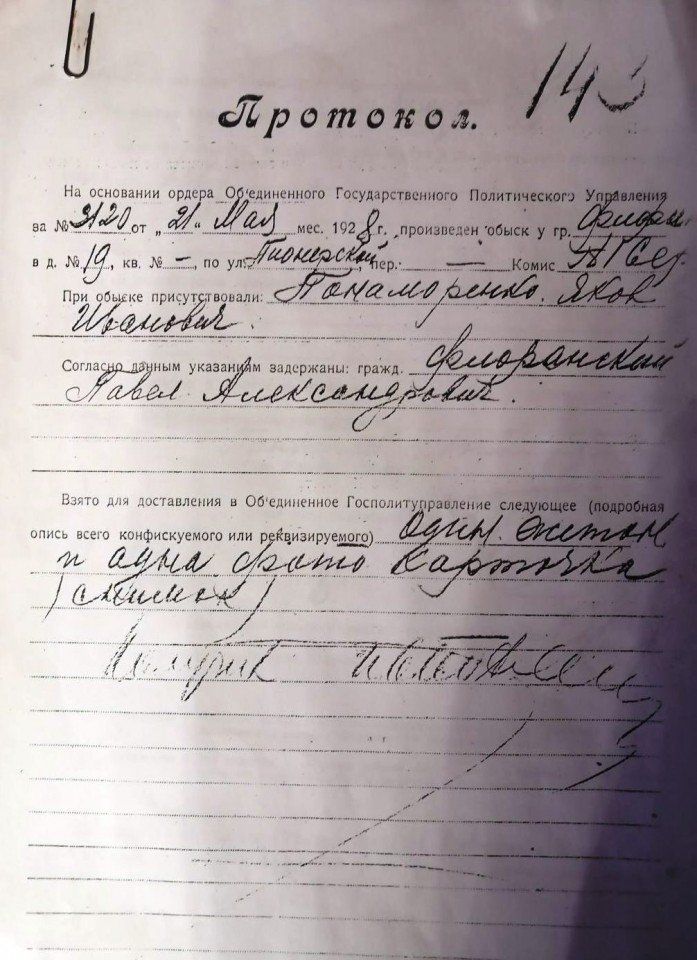 143
Протокол.
На основании ордера Об'единенного Государственного Политического Управления
за № 3120 от „21" Мая мес. 1928 г. произведен обыск у гр.
в д. № 19, кв. № —, по ул. Пионерской, пер. — Комис
При обыске присутствовали: Понаморенко Яков
Иванович.
Согласно данным указаниям задержаны: гражд. Флоранский
Павел Александрович.
Взято для доставления в Об'единенное Госполитуправление следующее (подробная
опись всего конфискуемого или реквизируемого) Один жетон
и одна фото карточка
(снимок)